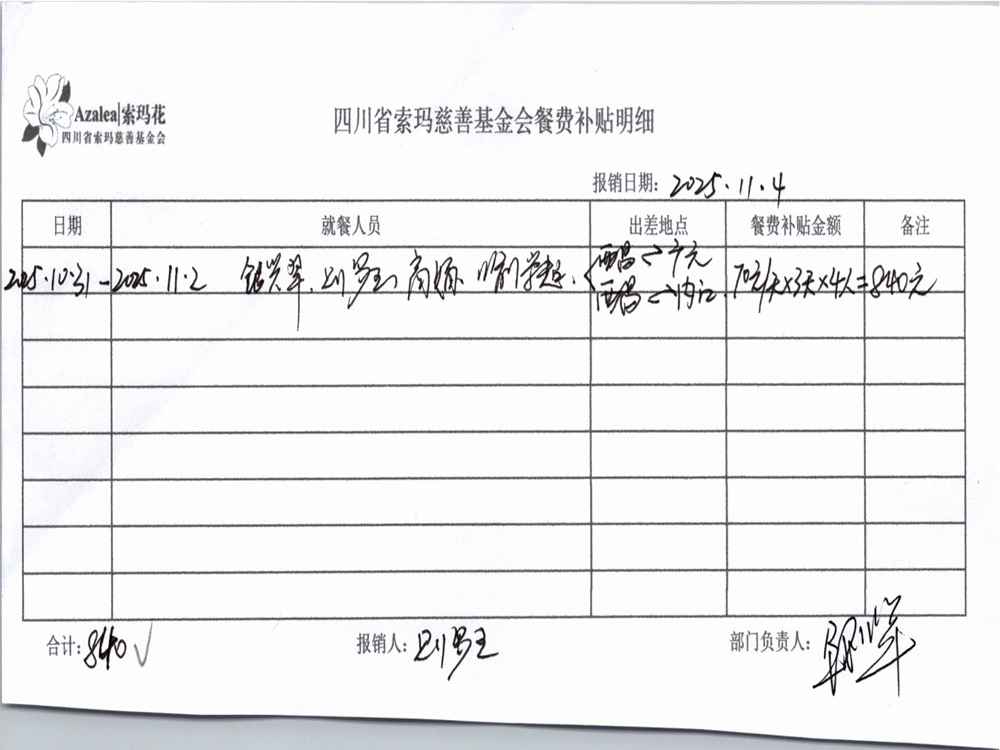 Azalea|索玛花
四川省索玛慈善基金会
四川省索玛慈善基金会餐费补贴明细
报销日期: 2025.11.4
日期 就餐人员 出差地点 餐费补贴金额 备注
2025.10.31-2025.11.2 西昌<->广元
西昌<->内江 70元/天×3天×4人=840元
合计: 840 ✓ 报销人: 部门负责人: